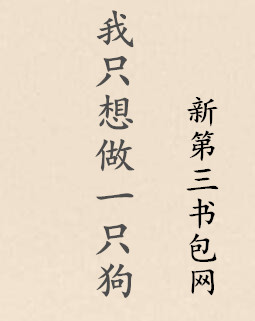 我只想做一只狗
新第三书包网